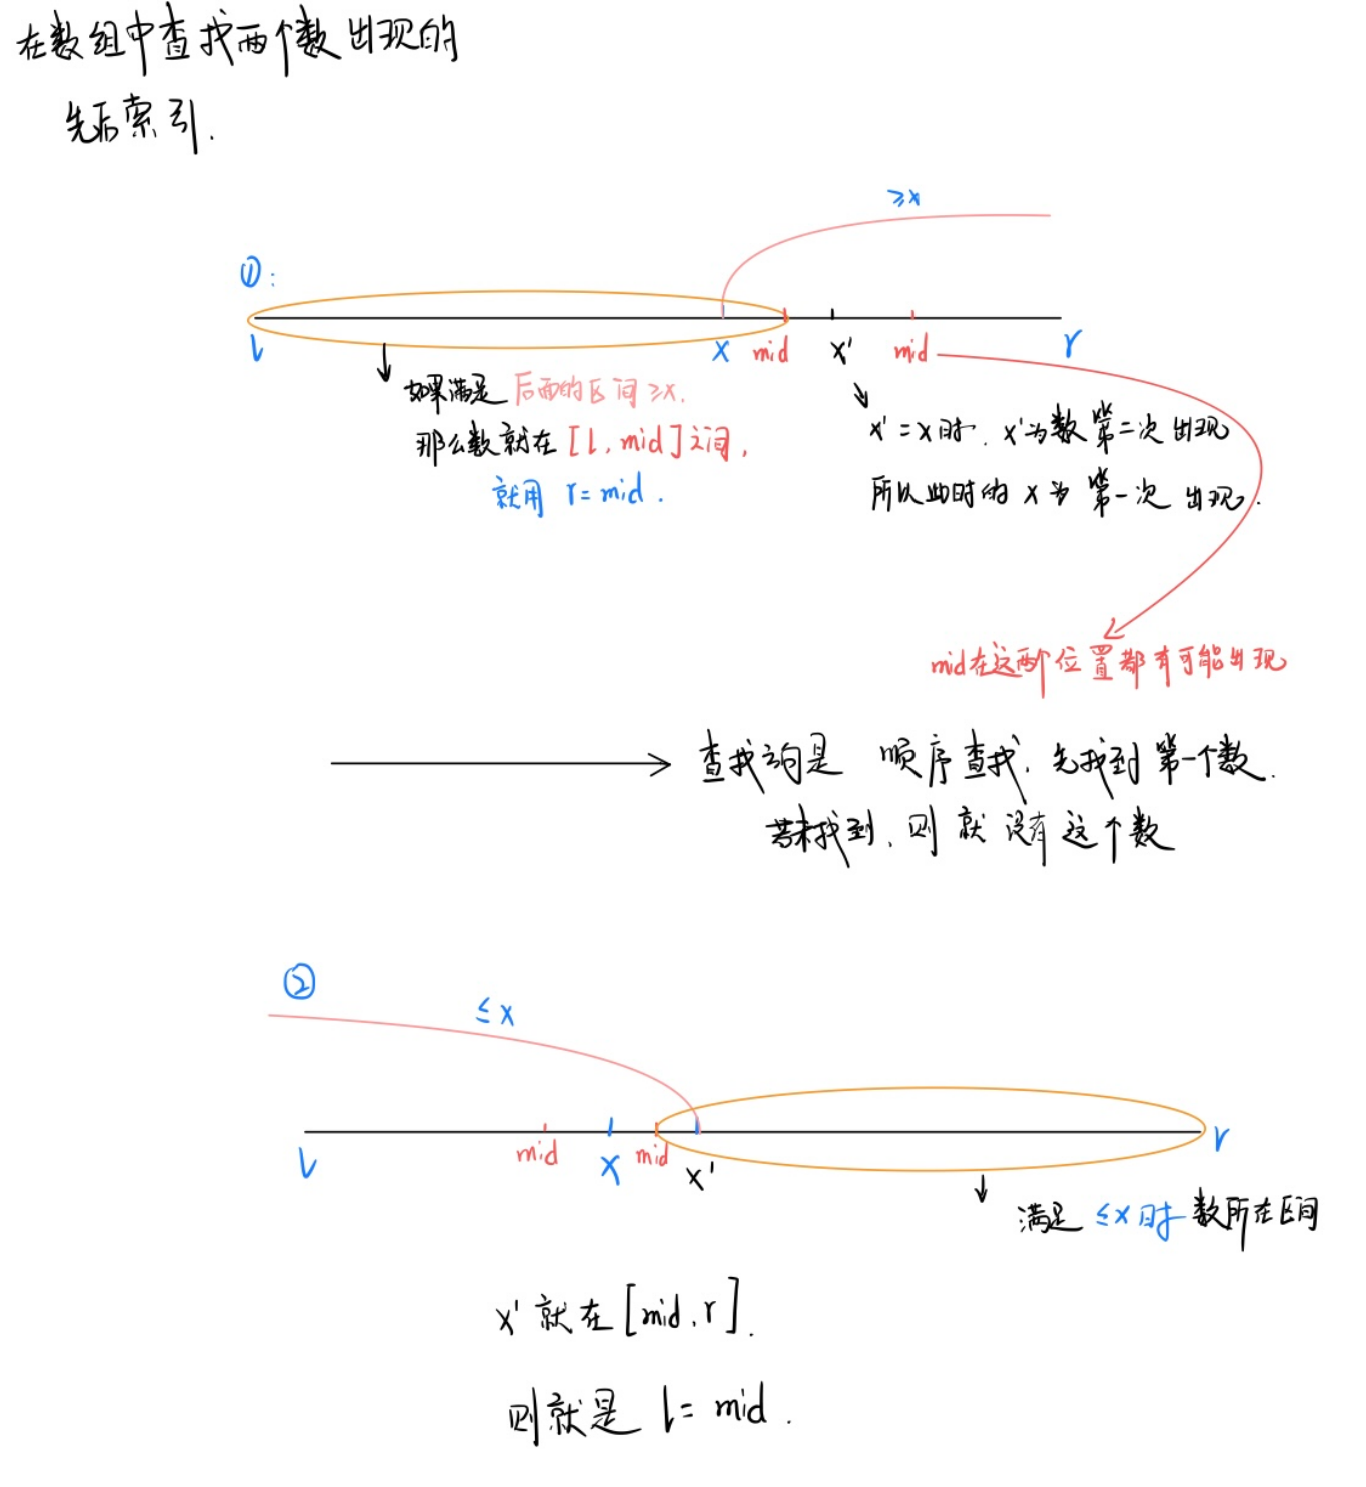 在数组中查找两个数出现的
先后索引.
≥x
①:
l x mid x' mid r
如果满足后面的区间≥x.
那么数就在[l,mid]之间,
就用 r=mid.
x'=x时.x'为数第二次出现
所以此时的x为第一次出现.
mid在这两个位置都有可能出现
查找询是 顺序查找.先找到第一个数.
若未找到.则就没有这个数
②
≤x
l mid x mid x' r
满足≤x时数所在区间
x'就在[mid.r].
则就是 l=mid.